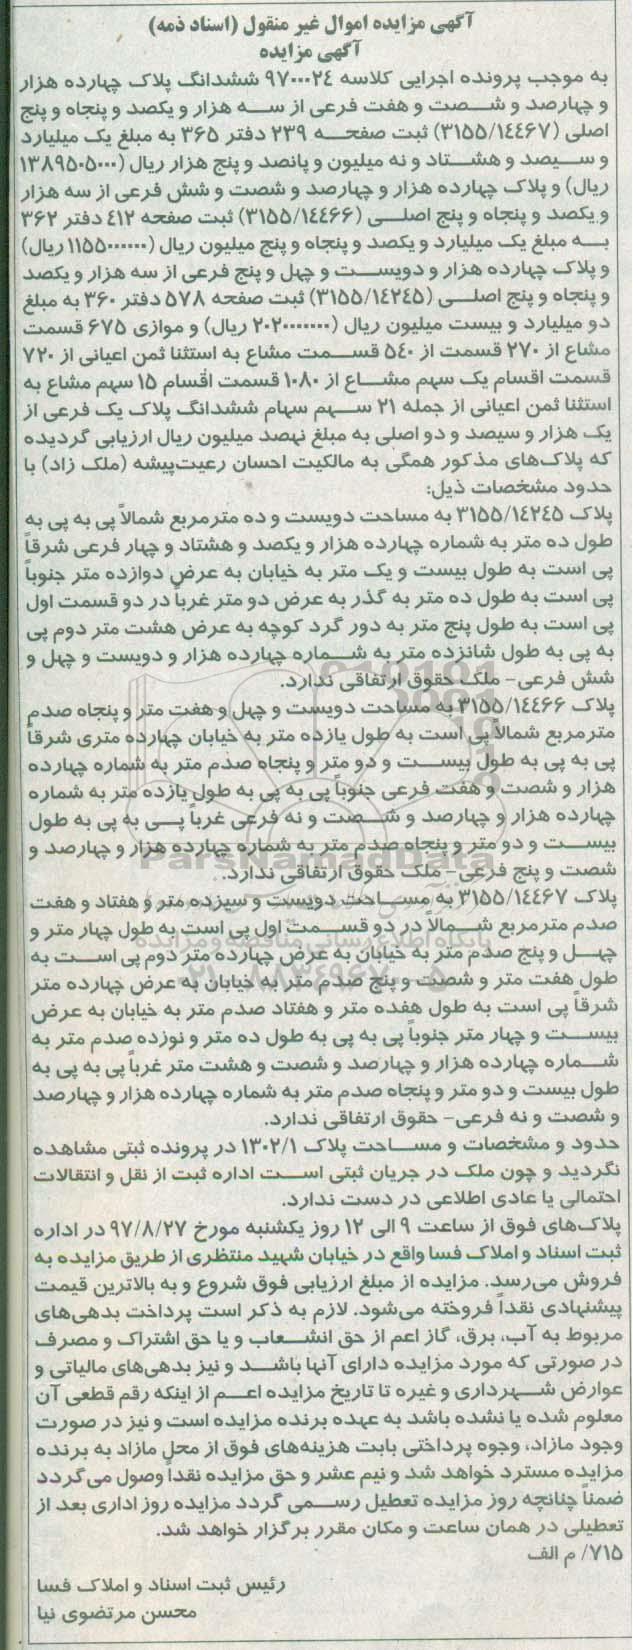 آگهی مزایده اموال غیر منقول (اسناد ذمه)
آگهی مزایده
به موجب پرونده اجرایی کلاسه ۹۷۰۰۰۲۴ ششدانگ پلاک چهارده هزار
و چهارصد و شصت و هفت فرعی از سه هزار و یکصد و پنجاه و پنج
اصلی (۳۱۵۵/۱۴۴۶۷) ثبت صفحه ۲۳۹ دفتر ۳۶۵ به مبلغ یک میلیارد
و سیصد و هشتاد و نه میلیون و پانصد و پنج هزار ریال (۱۳۸۹۵۰۵۰۰۰
ریال) و پلاک چهارده هزار و چهارصد و شصت و شش فرعی از سه هزار
و یکصد و پنجاه و پنج اصلی (۳۱۵۵/۱۴۴۶۶) ثبت صفحه ۴۱۲ دفتر ۳۶۲
به مبلغ یک میلیارد و یکصد و پنجاه و پنج میلیون ریال (۱۱۵۵۰۰۰۰۰۰ ریال)
و پلاک چهارده هزار و دویست و چهل و پنج فرعی از سه هزار و یکصد
و پنجاه و پنج اصلی (۳۱۵۵/۱۴۲۴۵) ثبت صفحه ۵۷۸ دفتر ۳۶۰ به مبلغ
دو میلیارد و بیست میلیون ریال (۲۰۲۰۰۰۰۰۰۰ ریال) و موازی ۶۷۵ قسمت
مشاع از ۲۷۰ قسمت از ۵۴۰ قسمت مشاع به استثنا ثمن اعیانی از ۷۲۰
قسمت اقسام یک سهم مشاع از ۱۰۸۰ قسمت اقسام ۱۵ سهم مشاع به
استثنا ثمن اعیانی از جمله ۲۱ سهم سهام ششدانگ پلاک یک فرعی از
یک هزار و سیصد و دو اصلی به مبلغ نهصد میلیون ریال ارزیابی گردیده
که پلاک‌های مذکور همگی به مالکیت احسان رعیت‌پیشه (ملک زاد) با
حدود مشخصات ذیل:
پلاک ۳۱۵۵/۱۴۲۴۵ به مساحت دویست و ده مترمربع شمالاً پی به پی به
طول ده متر به شماره چهارده هزار و یکصد و هشتاد و چهار فرعی شرقاً
پی است به طول بیست و یک متر به خیابان به عرض دوازده متر جنوباً
پی است به طول ده متر به گذر به عرض دو متر غرباً در دو قسمت اول
پی است به طول پنج متر به دور گرد کوچه به عرض هشت متر دوم پی
به پی به طول شانزده متر به شماره چهارده هزار و دویست و چهل و
شش فرعی- ملک حقوق ارتفاقی ندارد.
پلاک ۳۱۵۵/۱۴۴۶۶ به مساحت دویست و چهل و هفت متر و پنجاه صدم
مترمربع شمالاً پی است به طول یازده متر به خیابان چهارده متری شرقاً
پی به پی به طول بیست و دو متر و پنجاه صدم متر به شماره چهارده
هزار و شصت و هفت فرعی جنوباً پی به پی به طول یازده متر به شماره
چهارده هزار و چهارصد و شصت و نه فرعی غرباً پی به پی به طول
بیست و دو متر و پنجاه صدم متر به شماره چهارده هزار و چهارصد و
شصت و پنج فرعی- ملک حقوق ارتفاقی ندارد.
پلاک ۳۱۵۵/۱۴۴۶۷ به مساحت دویست و سیزده متر و هفتاد و هفت
صدم مترمربع شمالاً در دو قسمت اول پی است به طول چهار متر و
چهل و پنج صدم متر به خیابان به عرض چهارده متر دوم پی است به
طول هفت متر و شصت و پنج صدم متر به خیابان به عرض چهارده متر
شرقاً پی است به طول هفده متر و هفتاد صدم متر به خیابان به عرض
بیست و چهار متر جنوباً پی به پی به طول ده متر و نوزده صدم متر به
شماره چهارده هزار و چهارصد و شصت و هشت متر غرباً پی به پی به
طول بیست و دو متر و پنجاه صدم متر به شماره چهارده هزار و چهارصد
و شصت و نه فرعی- حقوق ارتفاقی ندارد.
حدود و مشخصات و مساحت پلاک ۱۳۰۲/۱ در پرونده ثبتی مشاهده
نگردید و چون ملک در جریان ثبتی است اداره ثبت از نقل و انتقالات
احتمالی یا عادی اطلاعی در دست ندارد.
پلاک‌های فوق از ساعت ۹ الی ۱۲ روز یکشنبه مورخ ۹۷/۸/۲۷ در اداره
ثبت اسناد و املاک فسا واقع در خیابان شهید منتظری از طریق مزایده به
فروش می‌رسد. مزایده از مبلغ ارزیابی فوق شروع و به بالاترین قیمت
پیشنهادی نقداً فروخته می‌شود. لازم به ذکر است پرداخت بدهی‌های
مربوط به آب، برق، گاز اعم از حق انشعاب و یا حق اشتراک و مصرف
در صورتی که مورد مزایده دارای آنها باشد و نیز بدهی‌های مالیاتی و
عوارض شهرداری و غیره تا تاریخ مزایده اعم از اینکه رقم قطعی آن
معلوم شده یا نشده باشد به عهده برنده مزایده است و نیز در صورت
وجود مازاد، وجوه پرداختی بابت هزینه‌های فوق از محل مازاد به برنده
مزایده مسترد خواهد شد و نیم عشر و حق مزایده نقداً وصول می‌گردد
ضمناً چنانچه روز مزایده تعطیل رسمی گردد مزایده روز اداری بعد از
تعطیلی در همان ساعت و مکان مقرر برگزار خواهد شد.
۷۱۵/ م الف
رئیس ثبت اسناد و املاک فسا
محسن مرتضوی نیا
ParsNamadData
پایگاه اطلاع رسانی مناقصه و مزایده